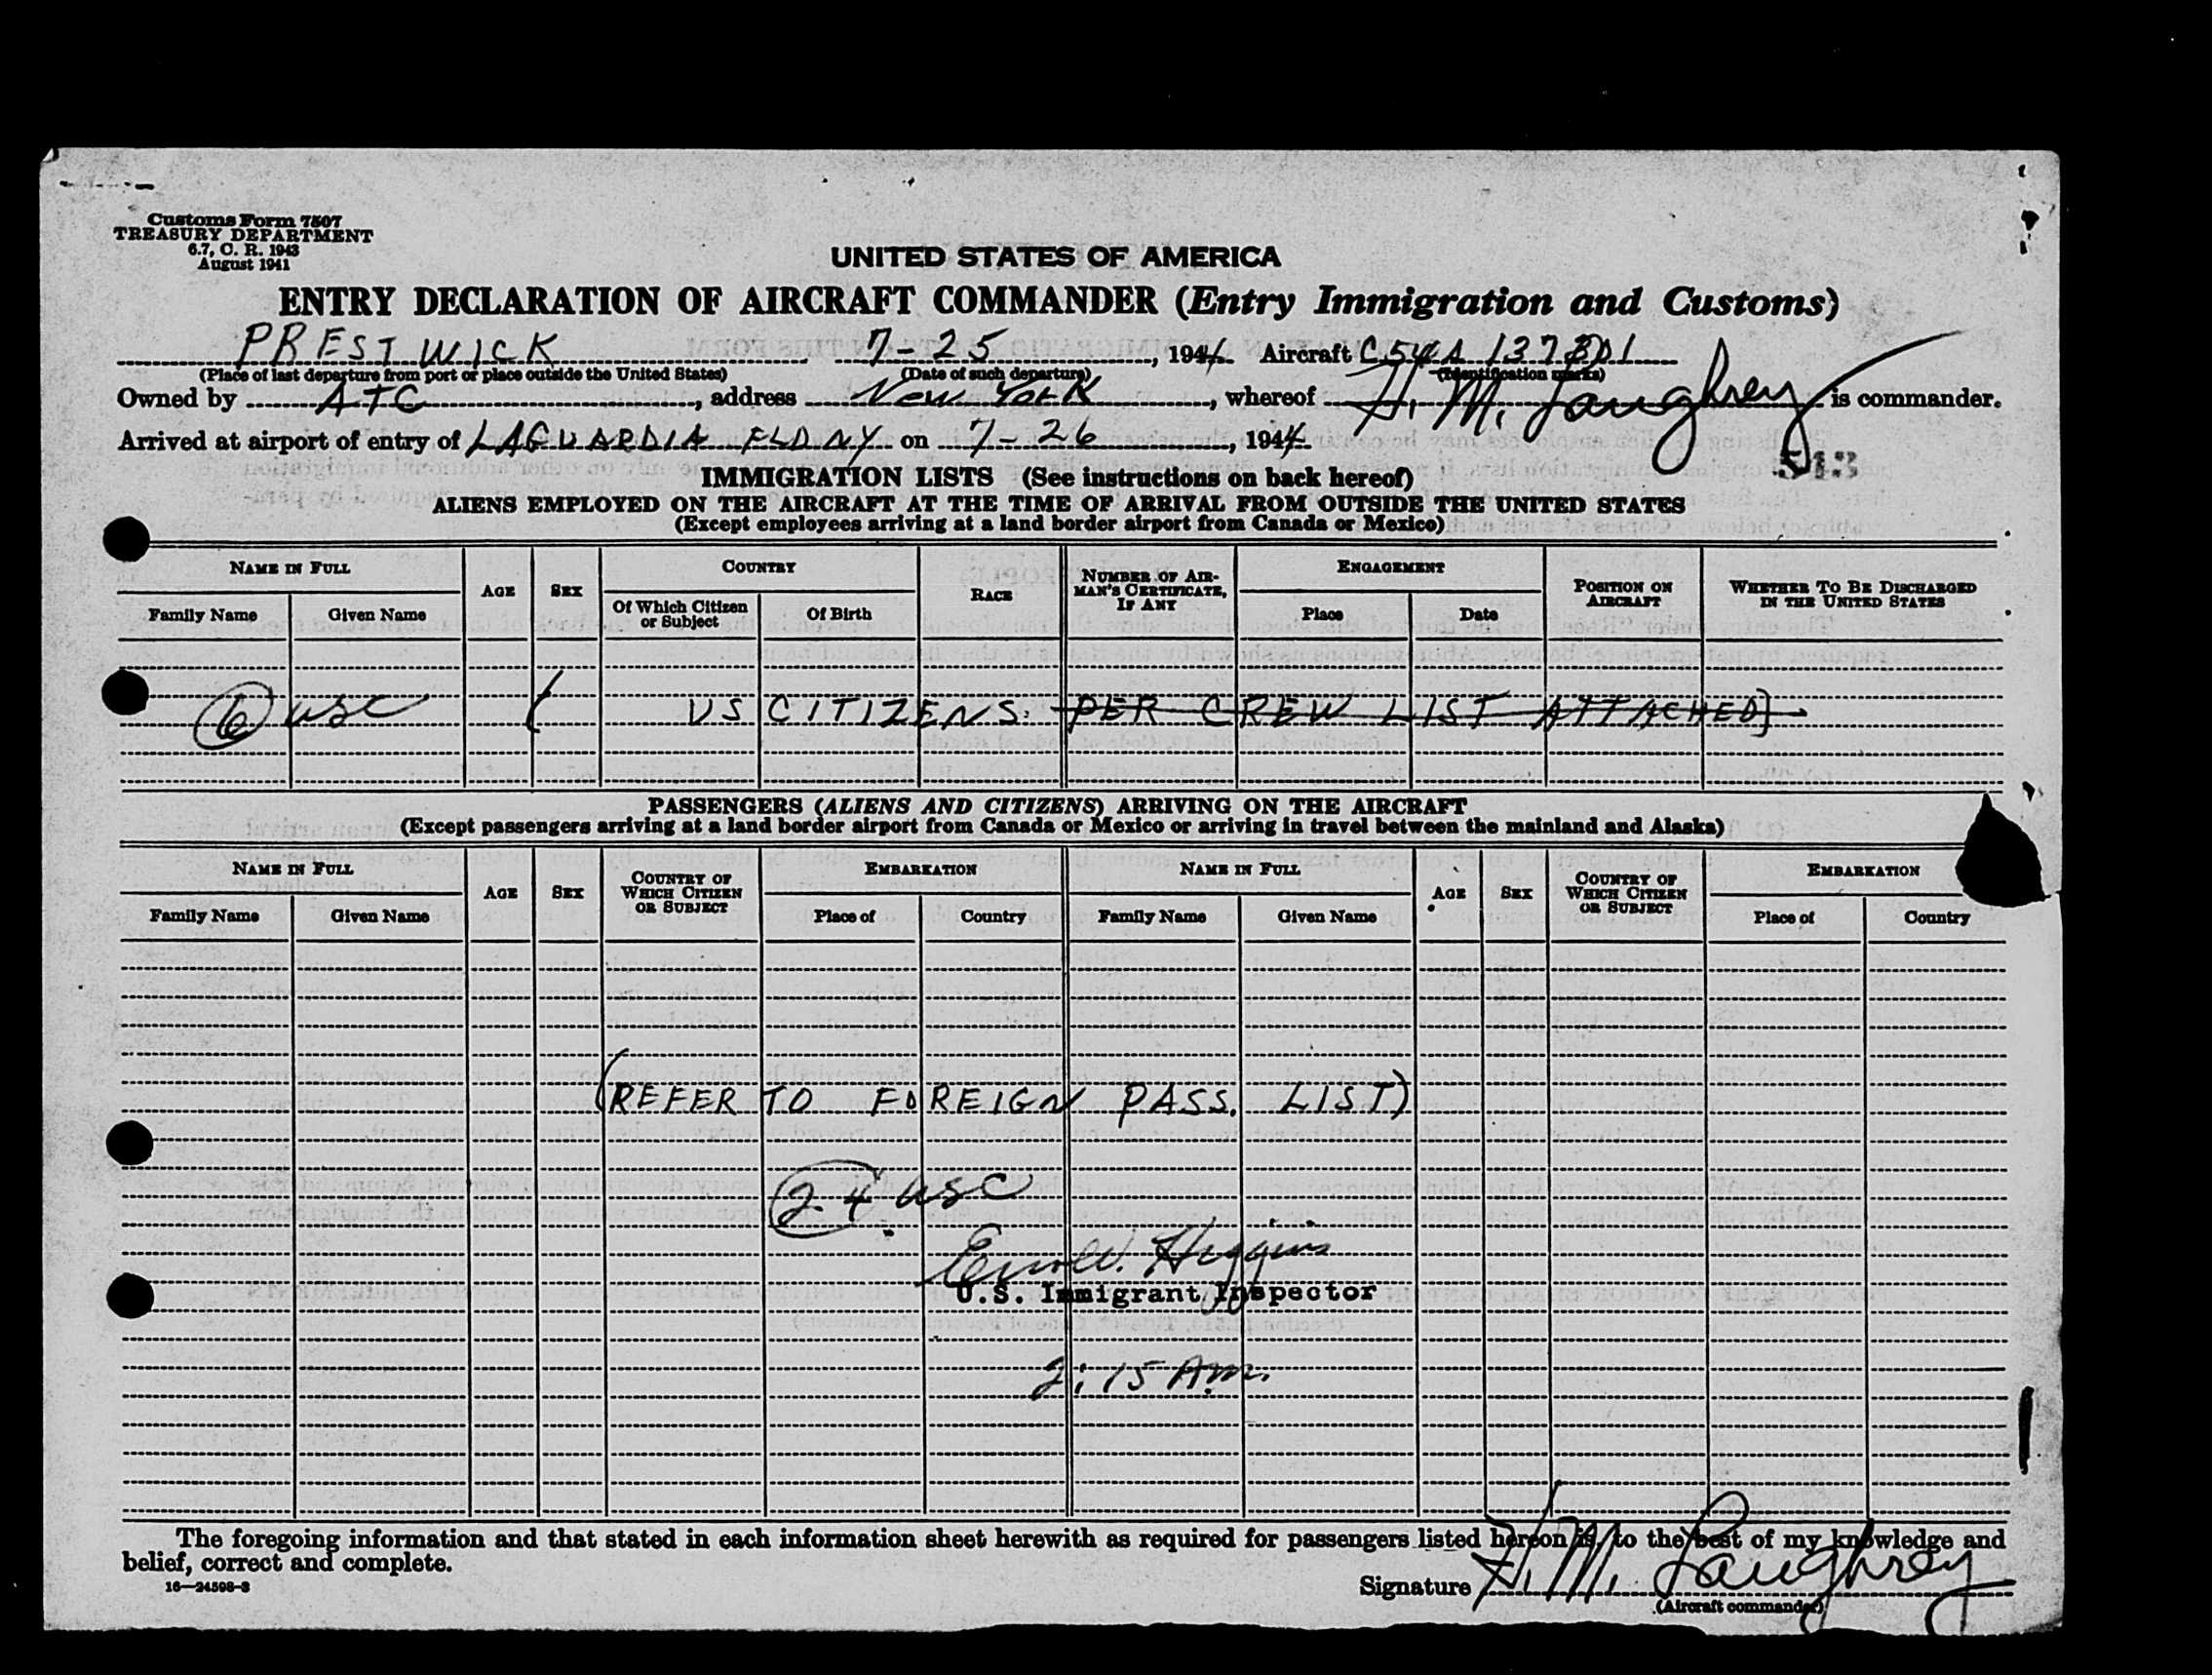 Customs Form 7507
TREASURY DEPARTMENT
6.7, C. R. 1943
August 1941
UNITED STATES OF AMERICA
ENTRY DECLARATION OF AIRCRAFT COMMANDER (Entry Immigration and Customs)
PRESTWICK 7-25, 1944 Aircraft C54A
(Place of last departure from port or place outside the United States) (Date of such departure) (Identification marks)
Owned by ATC, address New York, whereof H. M. Loughrey is commander.
Arrived at airport of entry of LAGUARDIA FLD NY on 7-26, 1944
513
IMMIGRATION LISTS (See instructions on back hereof)
ALIENS EMPLOYED ON THE AIRCRAFT AT THE TIME OF ARRIVAL FROM OUTSIDE THE UNITED STATES
(Except employees arriving at a land border airport from Canada or Mexico)
NAME IN FULL AGE SEX COUNTRY RACE NUMBER OF AIRMAN'S CERTIFICATE, IF ANY ENGAGEMENT POSITION ON AIRCRAFT WHETHER TO BE DISCHARGED IN THE UNITED STATES
Family Name Given Name Of Which Citizen or Subject Of Birth Place Date
6 USC (US CITIZENS. PER CREW LIST ATTACHED)
PASSENGERS (ALIENS AND CITIZENS) ARRIVING ON THE AIRCRAFT
(Except passengers arriving at a land border airport from Canada or Mexico or arriving in travel between the mainland and Alaska)
NAME IN FULL AGE SEX COUNTRY OF WHICH CITIZEN OR SUBJECT EMBARKATION NAME IN FULL AGE SEX COUNTRY OF WHICH CITIZEN OR SUBJECT EMBARKATION
Family Name Given Name Place of Country Family Name Given Name Place of Country
(REFER TO FOREIGN PASS. LIST)
24 USC
Higgins
U.S. Immigrant Inspector
2:15 AM.
The foregoing information and that stated in each information sheet herewith as required for passengers listed hereon is, to the best of my knowledge and
belief, correct and complete.
16—24598-3
Signature H. M. Loughrey
(Aircraft commander)